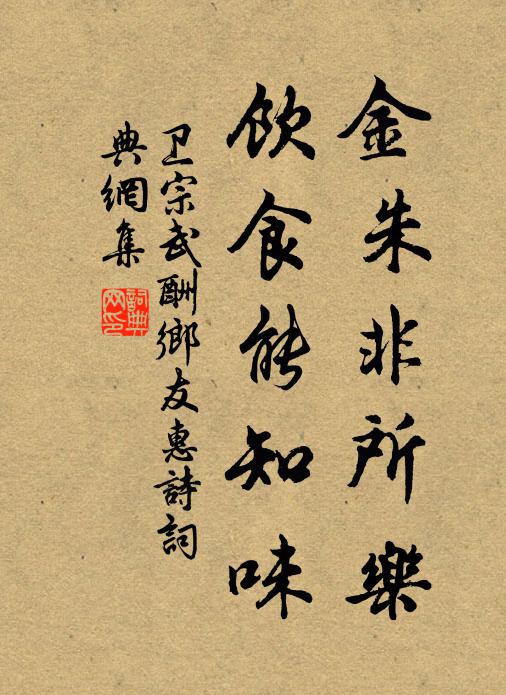 金朱非所樂
飲食能知味
卫宗武酬鄉友惠詩詞
典網集
詞典網印